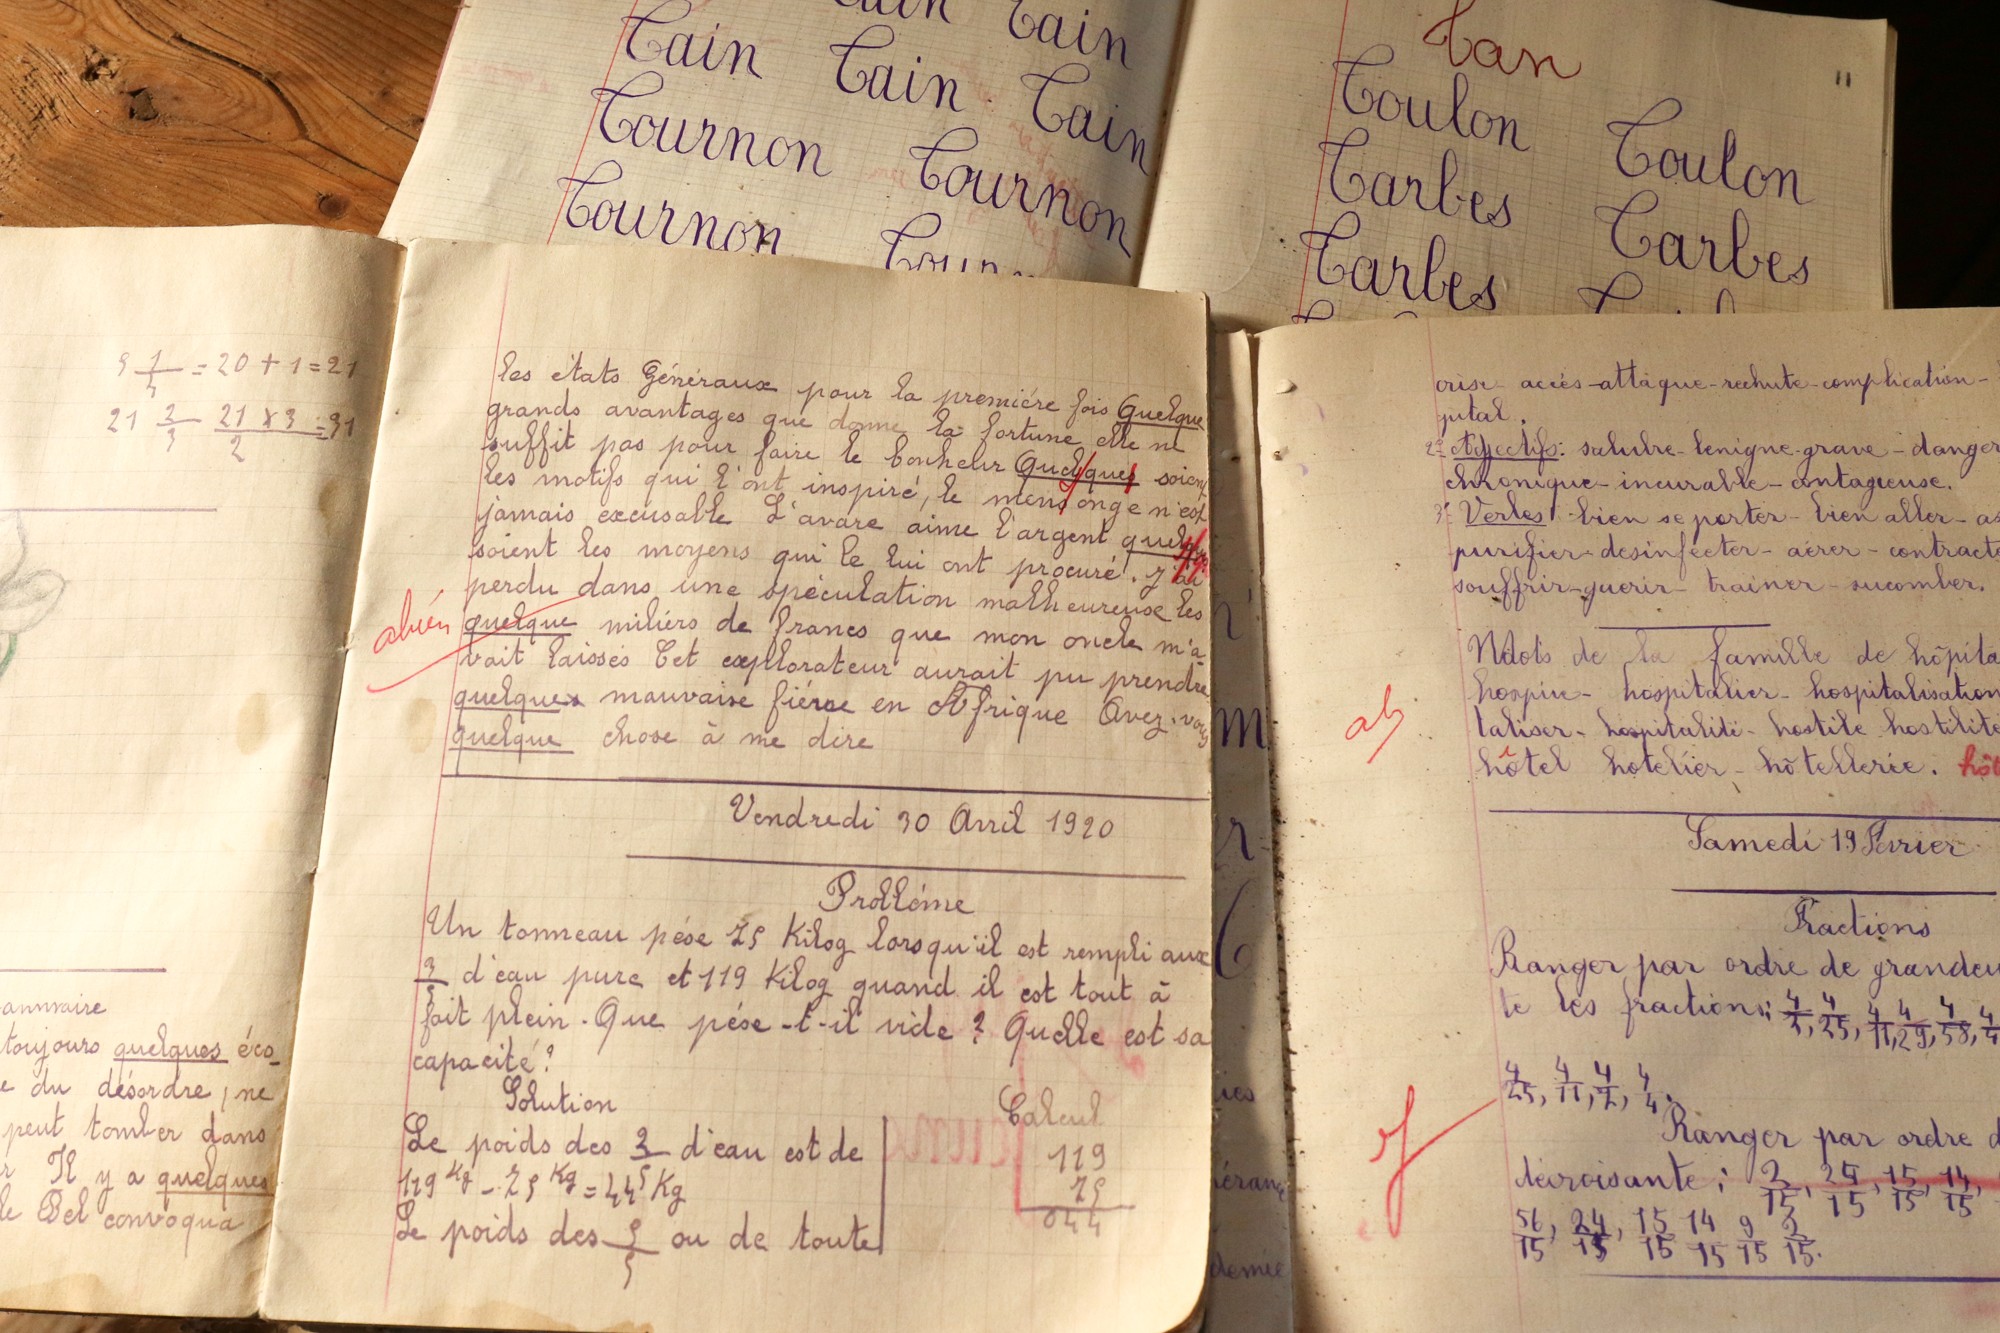 Tain Tain
Tain Tain Tain
Tournon Tournon
Tournon
Tan
11
Toulon Toulon
Tarbes Tarbes
Tarbes
= 20 + 1 = 21
21 2/3 21 x 3 = 31
2
annuaire
toujours quelques éco_
e du désordre, ne
peut tomber dans
r Il y a quelques
le Bel convoqua
les états Généraux pour la première fois Quelque
grands avantages que donne la fortune elle ne
suffit pas pour faire le bonheur Quelques soient
les motifs qui l'ont inspiré, le mensonge n'est
jamais excusable L'avare aime l'argent
soient les moyens qui le lui ont procuré. J'ai
perdu dans une spéculation malheureuse les
quelque miliérs de francs que mon oncle m'a-
vait laissés Cet explorateur aurait pu prendre
quelques mauvaise fiévre en Afrique Avez-vous
quelque chose à me dire
Vendredi 30 Avril 1920
Probléme
Un tonneau pése 75 Kilog lorsqu'il est rempli aux
3/5 d'eau pure et 119 Kilog quand il est tout à
fait plein. Que pése-t-il vide ? Quelle est sa
capacité ?
Solution Calcul
Le poids des 2 d'eau est de 119
119 Kg - 75 Kg = 44 Kg 75
Le poids des 5/5 ou de toute 044
crise accés-attaque-rechute-complication-
pital.
2º Adjectifs: salubre-benigne-grave-danger
chronique-incurable-contagieuse.
3º Verbes bien se porter-bien aller-as
purifier-desinfecter-aérer-contracte
souffrir-guerir-trainer-sucomber.
Mots de la famille de hôpita
hospice-hospitalier-hospitalisation
taliser-hospitalité-hostile hostilité
ab
hôtel hotelier-hôtellerie. hôt
Samedi 19 Février
Fractions
Ranger par ordre de grandeu
te les fractions: 4/2, 4/25, 4/11, 4/29, 4/58,
4/25, 4/11, 4/7, 4/4.
Ranger par ordre d
décroisante: 2/15, 24/15, 15/15, 14/15,
56/15, 24/15, 15/15 14/15 9/15 2/15.